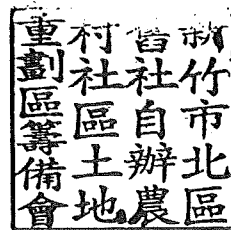 新竹市北區
舊社自辦農
村社區土地
重劃區籌備會